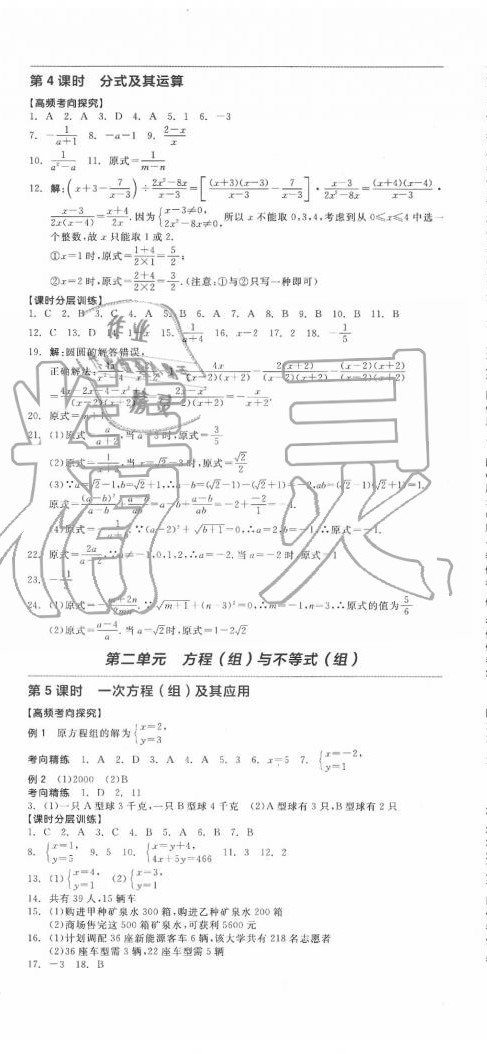 第4课时 分式及其运算
【高频考向探究】
1. A 2. A 3. D 4. A 5. 1 6. −3
7. −1/(a+1) 8. −a−1 9. (2−x)/x
10. 1/(a²−a) 11. 原式=1/(m−n)
12. 解:(x+3−7/(x−3))÷(2x²−8x)/(x−3)=[(x+3)(x−3)/(x−3)−7/(x−3)]·(x−3)/(2x²−8x)=(x+4)(x−4)/(x−3)·
(x−3)/(2x(x−4))=(x+4)/(2x).因为{x−3≠0, 2x²−8x≠0, 所以x不能取0,3,4,考虑到从0≤x≤4中选一
个整数,故x只能取1或2.
①x=1时,原式=(1+4)/(2×1)=5/2;
②x=2时,原式=(2+4)/(2×2)=3/2.(注意:①与②只写一种即可)
【课时分层训练】
1. C 2. B 3. C 4. A 5. B 6. A 7. A 8. B 9. B 10. B 11. B
12. C 13. D 15. 1/(a+4) 16. x−2 17. 2 18. −1/5
19. 解:圆圆的解答错误,
正确解法: 4x/((x−2)(x+2))−2(x+2)/((x−2)(x+2))−(x−2)(x+2)/((x−2)(x+2))
=−x/(x+2).
20. 原式=
21. (1)原式=a/(a+2),当a=3时,原式=3/5
(2)原式= 时,原式=√2/2
(3)∵a=√2−1,b=√2+1,∴a−b=(√2−1)−(√2+1)=−2,ab=(√2−1)(√2+1)=1,
原式=(a−b)²/(a−b)+(a−b)/ab=a−b+(a−b)/ab=−2+(−2)/1=−4.
(4)原式= ∵(a−2)²+√(b+1)=0,∴a=2,b=−1,∴原式=
22. 原式=2a/(a−2),∵a≠−1,0,1,2,∴a=−2.当a=−2时,原式=1
23. −1
24. (1)原式= ∵√(m+1)+(n−3)²=0,∴m=−1,n=3,∴原式的值为5/6
(2)原式=(a−4)/a.当a=√2时,原式=1−2√2
第二单元 方程(组)与不等式(组)
第5课时 一次方程(组)及其应用
【高频考向探究】
例1 原方程组的解为{x=2, y=3
考向精练 1. A 2. D 3. A 4. A 5. 3 6. x=5 7. {x=−2, y=1
例2 (1)2000 (2)B
考向精练 1. D 2. 11
3. (1)一只A型球3千克,一只B型球4千克 (2)A型球有3只,B型球有2只
【课时分层训练】
1. C 2. A 3. C 4. B 5. A 6. B 7. B
8. {x=1, y=5 9. 5 10. {x=y+4, 4x+5y=466 11. 3 12. 2
13. (1){x=4, y=1 (2){x=3, y=1
14. 共有39人,15辆车
15. (1)购进甲种矿泉水300箱,购进乙种矿泉水200箱
(2)商场售完这500箱矿泉水,可获利5600元
16. (1)计划调配36座新能源客车6辆,该大学共有218名志愿者
(2)36座车型需3辆,22座车型需5辆
17. −3 18. B